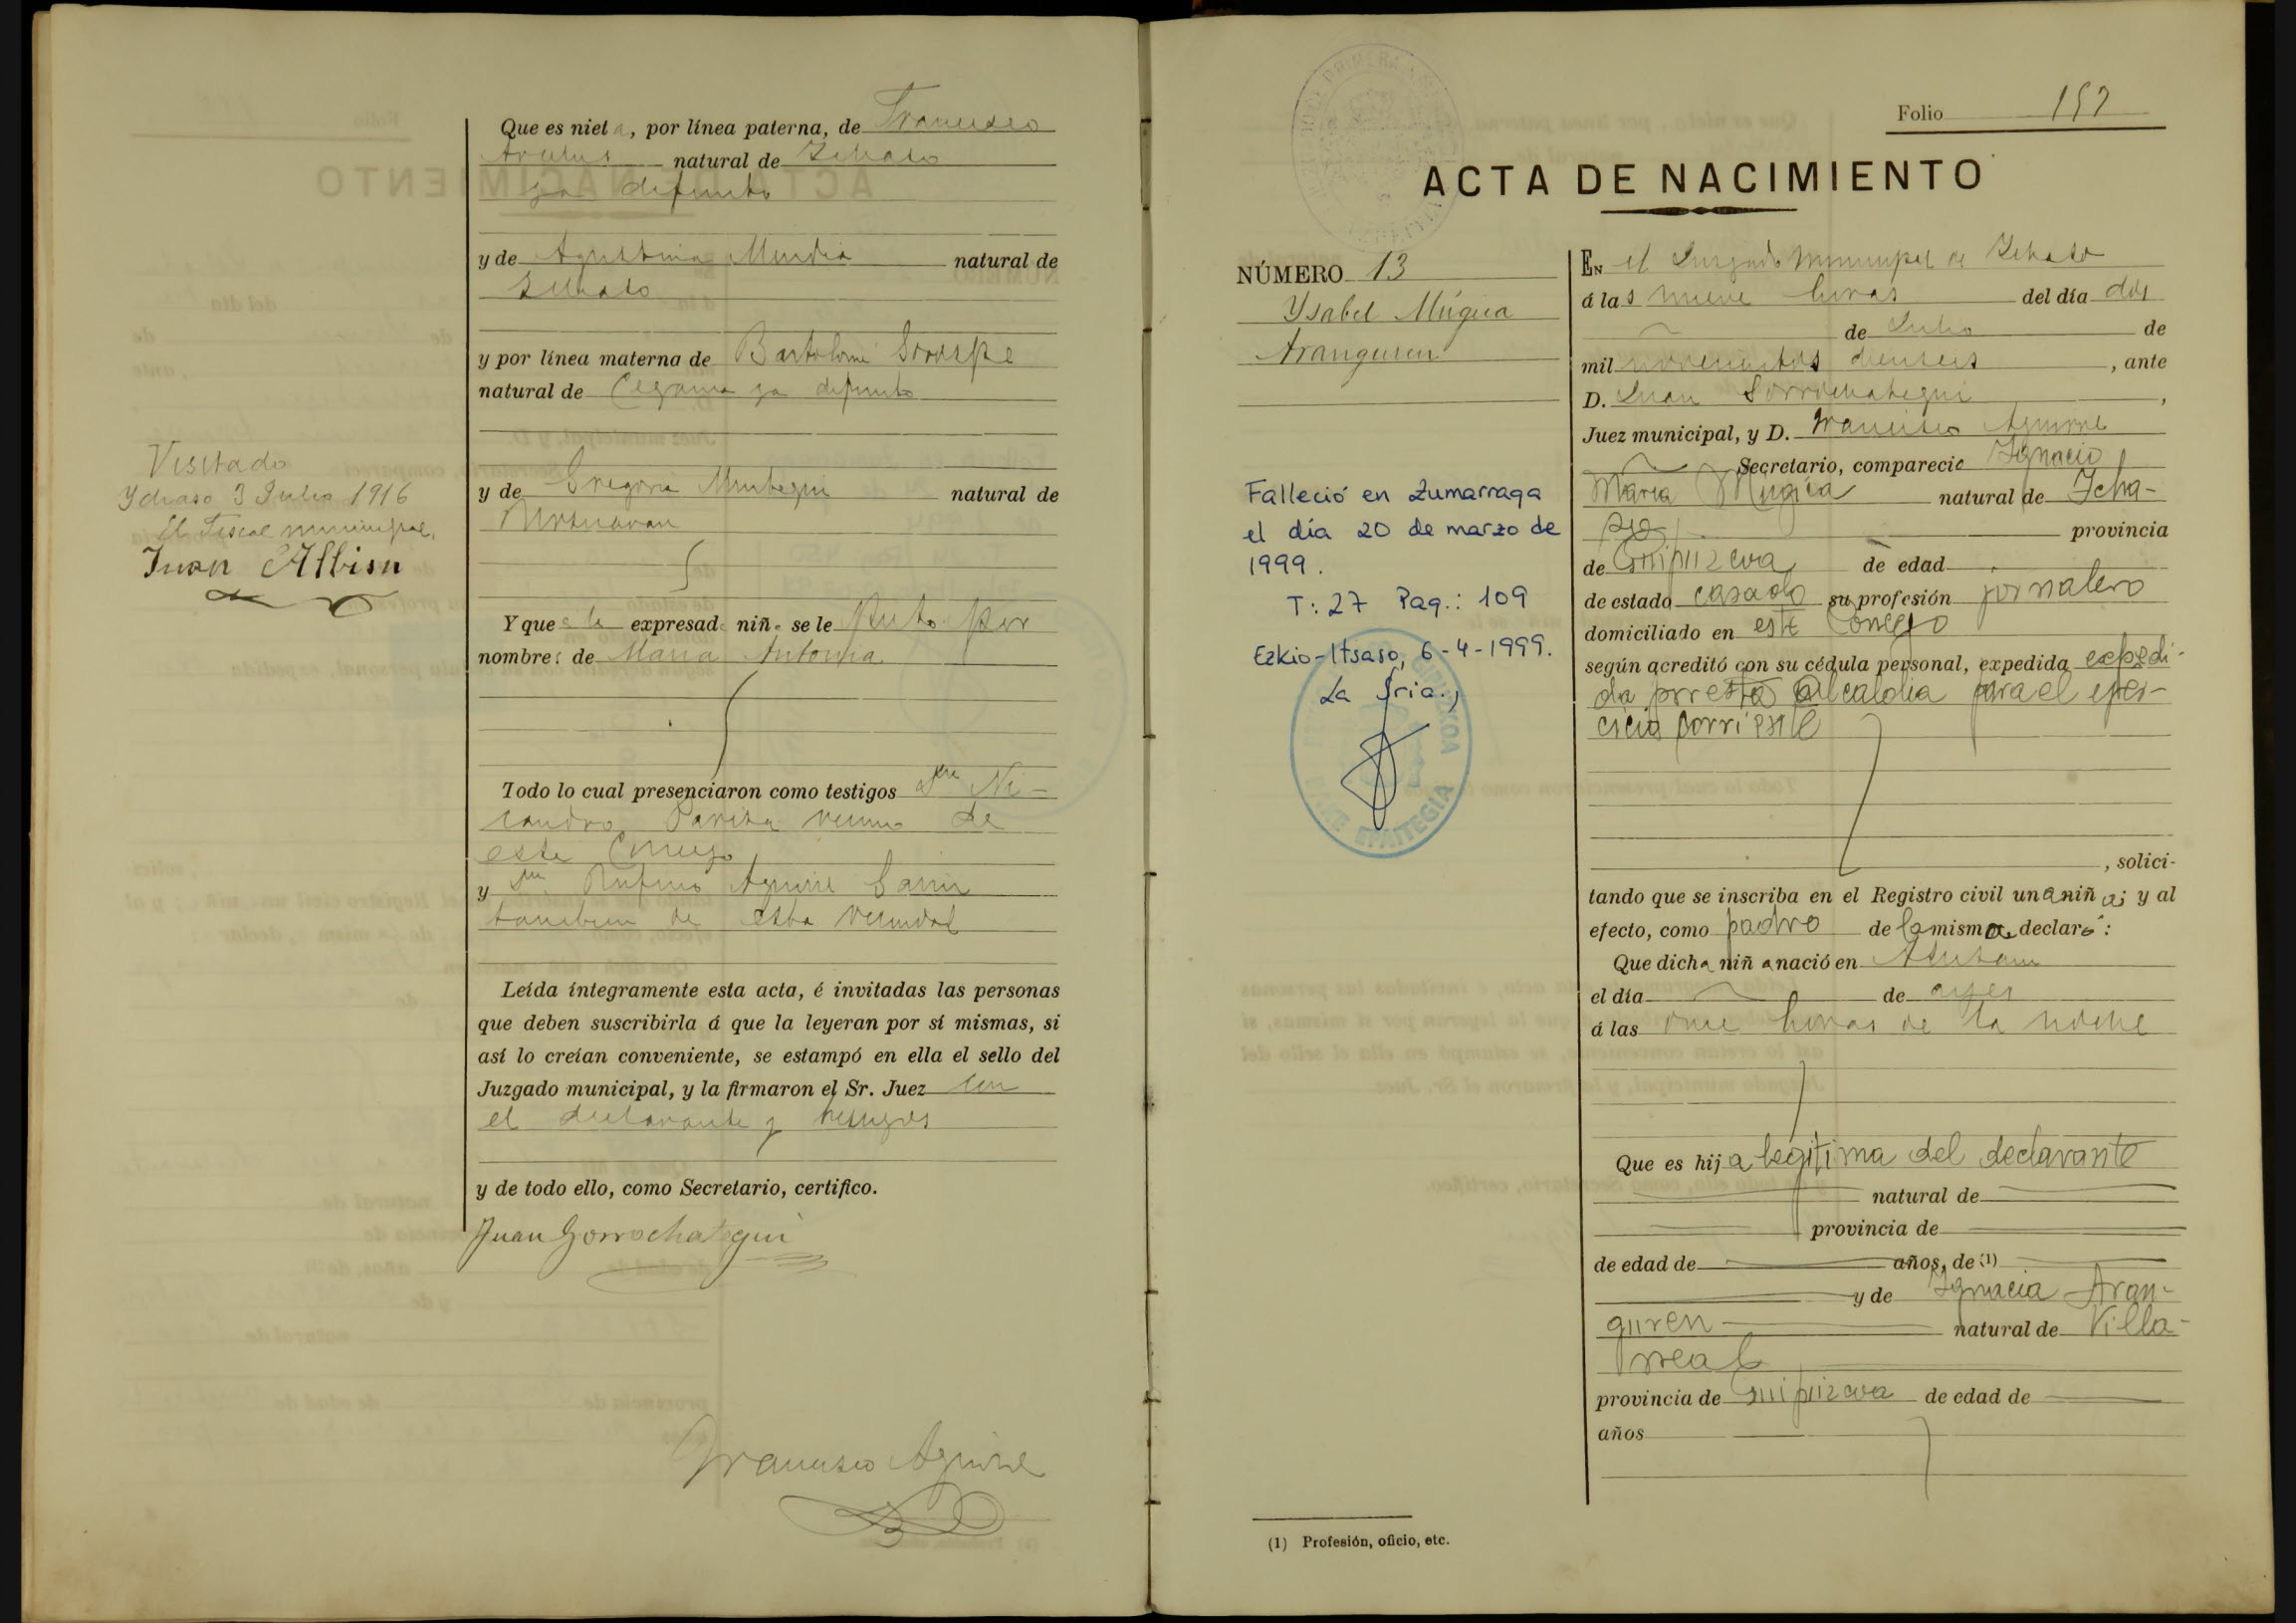 Que es nieta, por línea paterna, de Francisco
natural de Ichaso
ya difunto
y de Agustina Mendia natural de
Ichaso
y por línea materna de Bartolomé
natural de Cegama ya difunto
y de Gregoria natural de
Y que a la expresada niña se le puso por
nombres de Maria Antonia
Todo lo cual presenciaron como testigos Dn Ni-
candro vecino de
este Concejo
y Dn Rufino Aguirre
tambien de esta vecindad
Leída íntegramente esta acta, é invitadas las personas
que deben suscribirla á que la leyeran por sí mismas, si
así lo creían conveniente, se estampó en ella el sello del
Juzgado municipal, y la firmaron el Sr. Juez con
el declarante y testigos
y de todo ello, como Secretario, certifico.
Juan Gorrochategui
Francisco Aguirre
Visitado
Ychaso 3 Julio 1916
El Fiscal municipal,
Juan Albisu
Folio 157
ACTA DE NACIMIENTO
NÚMERO 13
Ysabel Múgica
Aranguren
Falleció en Zumarraga
el día 20 de marzo de
1999.
T: 27 Pag.: 109
Ezkio-Itsaso, 6-4-1999.
La Sria.,
EN el Juzgado municipal de Ichaso
á las nueve horas del día dos
de Julio de
mil novecientos dieciseis, ante
D. Juan Gorrochategui,
Juez municipal, y D. Francisco Aguirre
Secretario, compareció Ignacio
Maria Mugica natural de Icha-
so provincia
de Guipúzcoa de edad
de estado casado su profesión jornalero
domiciliado en este Concejo
según acreditó con su cédula personal, expedida expedi-
da por esta alcaldia para el ejer-
cicio corriente
, solici-
tando que se inscriba en el Registro civil una niña; y al
efecto, como padre de la misma, declaró:
Que dicha niña nació en
el día de ayer
á las once horas de la noche
Que es hija legitima del declarante
natural de
provincia de
de edad de años, de (1)
y de Ignacia Aran-
guren natural de Villa-
rreal
provincia de Guipuzcoa de edad de
años
(1) Profesión, oficio, etc.